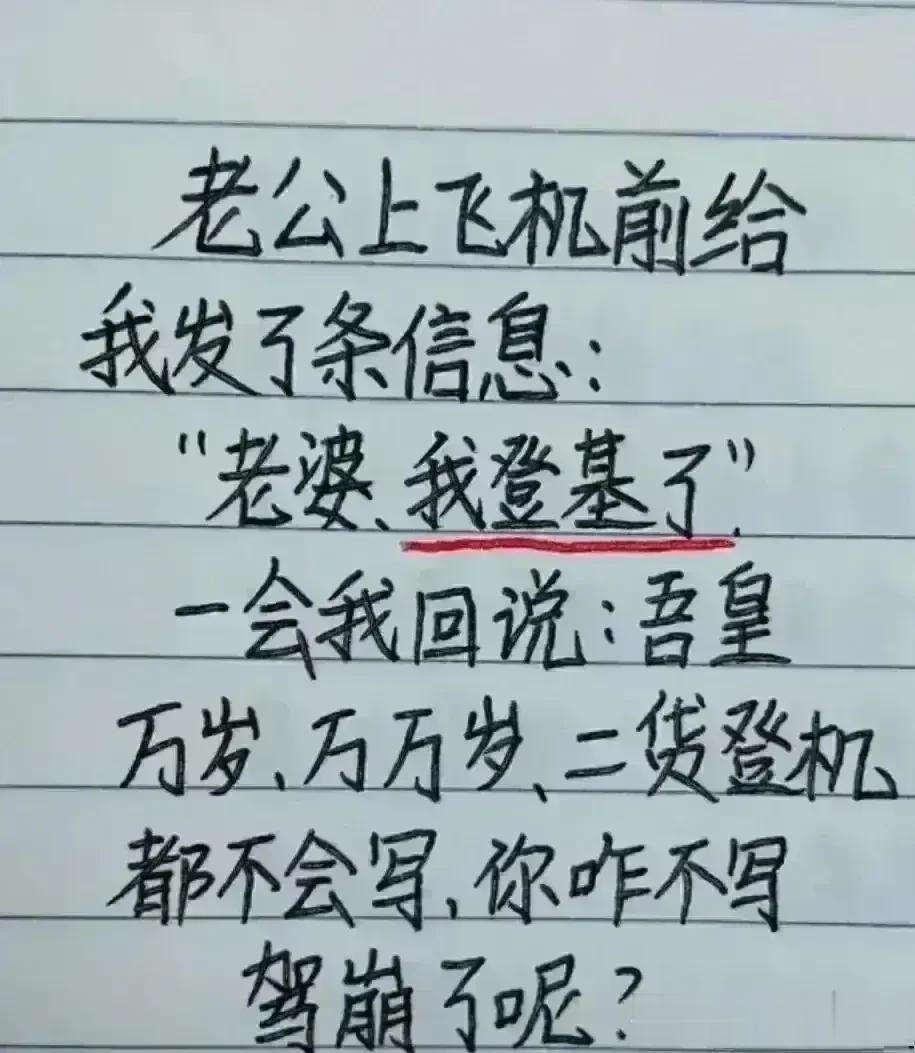 老公上飞机前给
我发了条信息:
"老婆、我登基了".
一会我回说:吾皇
万岁、万万岁、二货登机
都不会写,你咋不写
驾崩了呢?